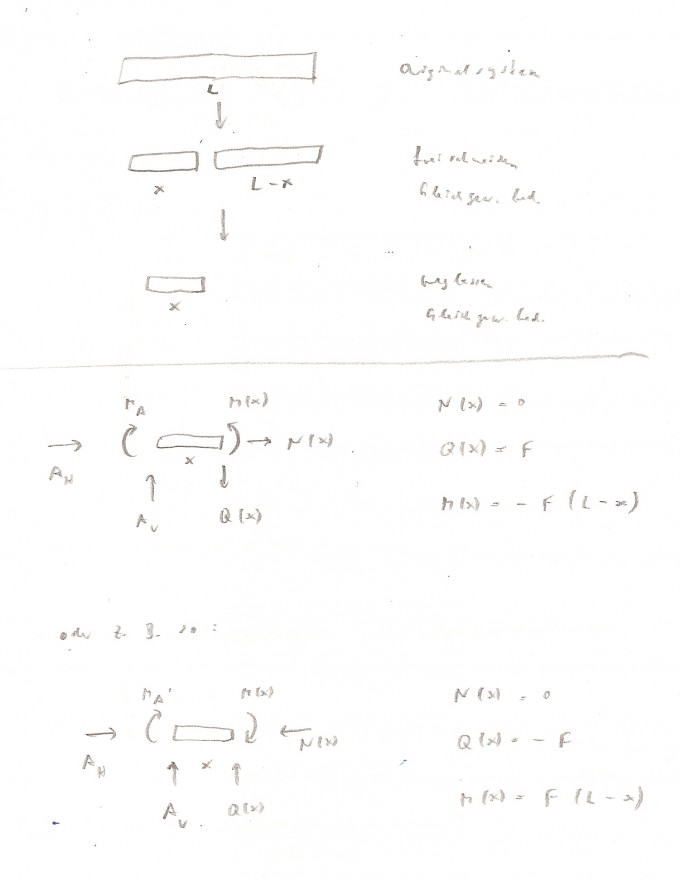 Originalsystem
L
freischneiden
x L-x
Gleichgew. bed.
weglassen
x
Gleichgew. bed.
M_A M(x) N(x) = 0
N(x) Q(x) = F
x
A_H
M(x) = - F (L-x)
A_V Q(x)
oder z. B. so:
M_A' M(x) N(x) = 0
N(x) Q(x) = - F
A_H x
A_V Q(x) M(x) = F (L-x)